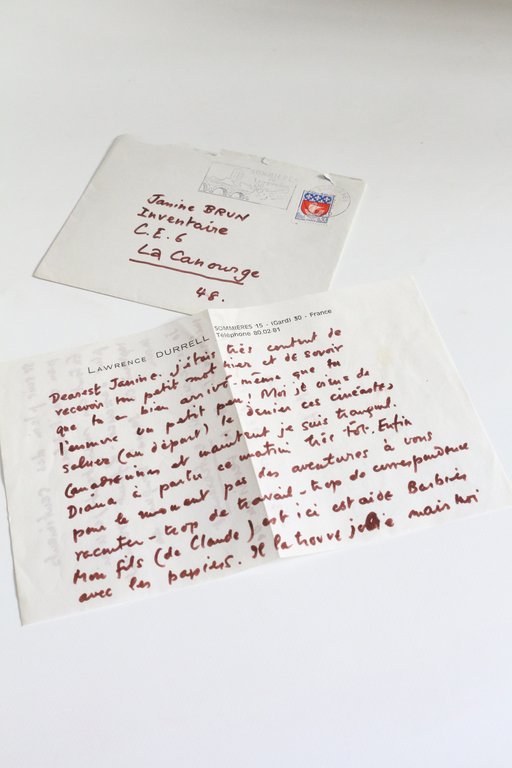 Janine BRUN
Inventaire
C.E.6
La Canourge
48.
LAWRENCE DURRELL
SOMMIÈRES 15 - (Gard) 30 - France
Téléphone 80.02.81
Dearest Janine. J'étais très content de
recevoir ton petit mot hier et de savoir
que tu a bien arrivé même que tu
t'ennuie un petit peu! Moi je viens de
saluer (au départ) le dernier ces cinéastes
Canadiennes et maintenant je suis tranquil.
Diana à partu ce matin très tot. Enfin
pour le moment pas des aventures à vous
raconter - trop de travail - trop de correspondence
Mon fils (de Claude) est ici est aide Barbies
avec les papiers. Il la trouve jolie mais moi